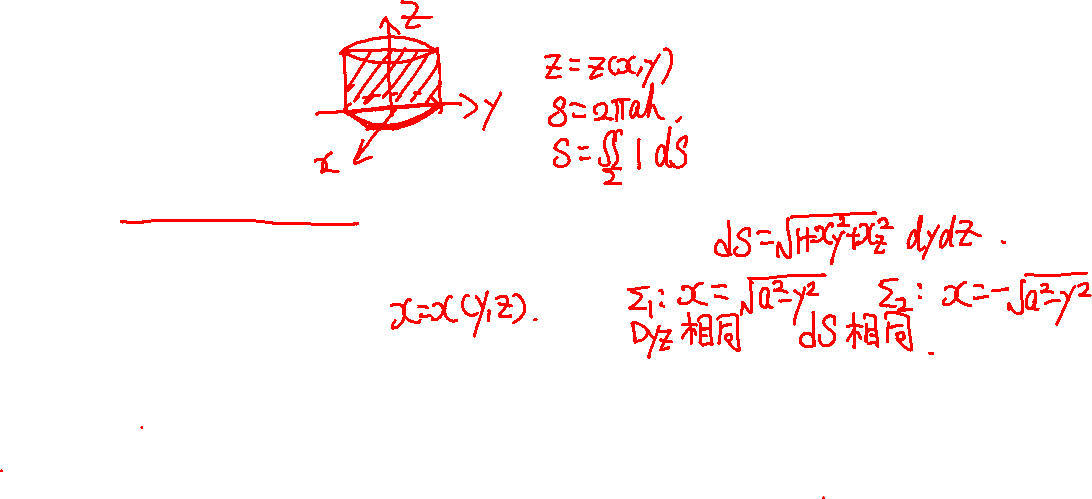 Z
y
x
Z = z(x,y)
S = 2πah.
S = ∬_Σ 1 dS
dS = √(1+x_y²+x_z²) dydz.
x = x(y,z).
Σ₁: x = √(a²-y²) Σ₂: x = -√(a²-y²)
Dyz 相同 dS 相同.